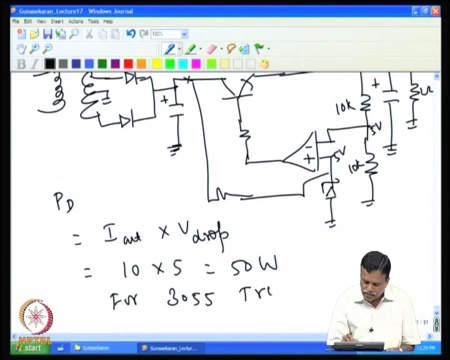 Gunasekaran_Lecture17 - Windows Journal
File Edit View Insert Actions Tools Help
100%
B I
10k
5V
5V
10k
P_D
= I_out × V_drop
= 10 × 5 = 50W
For 3055 Tr
start
Gunasekaran
Gunasekaran_Lectur...